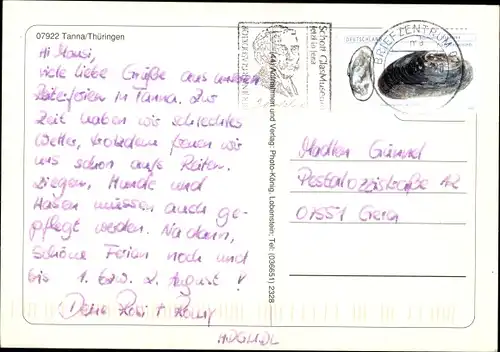 07922 Tanna/Thüringen
Hi
viele liebe Grüße aus unseren
Reiterferien in Tanna. Zur
Zeit haben wir schlechtes
Wetter, trotzdem freuen wir
uns schon aufs Reiten.
Ziegen, Hunde und
Hasen müssen auch ge-
pflegt werden. Na dann,
schöne Ferien noch und
bis 1. bzw. 2. August!
Deine
HDGMDL
(44) Aufnahmen und Verlag: Photo-König, Lobenstein; Tel: (036651) 2328
Schott GlasMuseum
jetzt in Jena
DEUTSCHLAND
BRIEFZENTRUM
Pestalozzistraße 12
07551 Gera